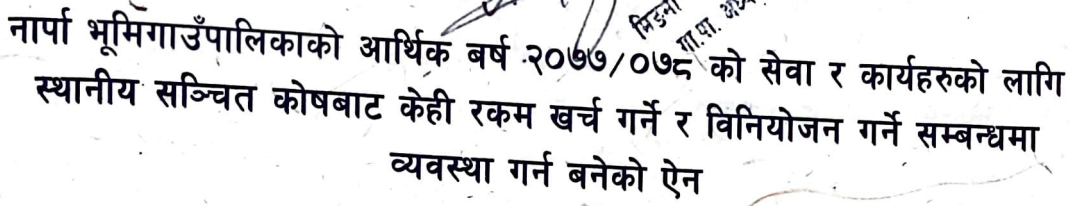 गा.पा.
नार्पा भूमिगाउँपालिकाको आर्थिक बर्ष २०७७/०७८ को सेवा र कार्यहरुको लागि
स्थानीय सञ्चित कोषबाट केही रकम खर्च गर्ने र विनियोजन गर्ने सम्बन्धमा
व्यवस्था गर्न बनेको ऐन